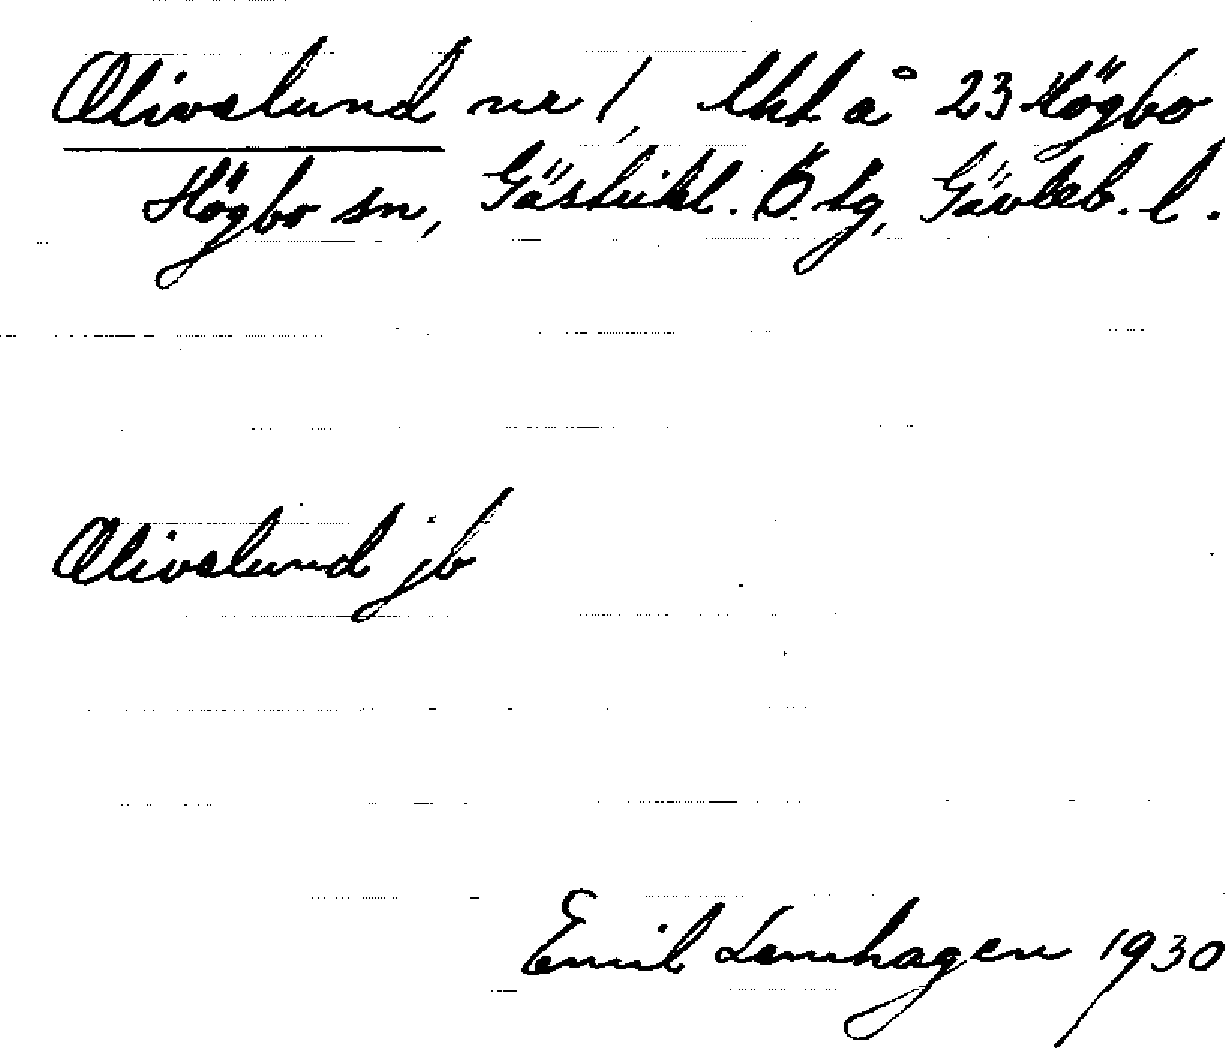 Olivslund nr 1, lht å 23 Högbo,
Högbo sn, Gästrikl. Ö. tg, Gävleb. l.
Olivslund jb
Emil Lennhagen 1930